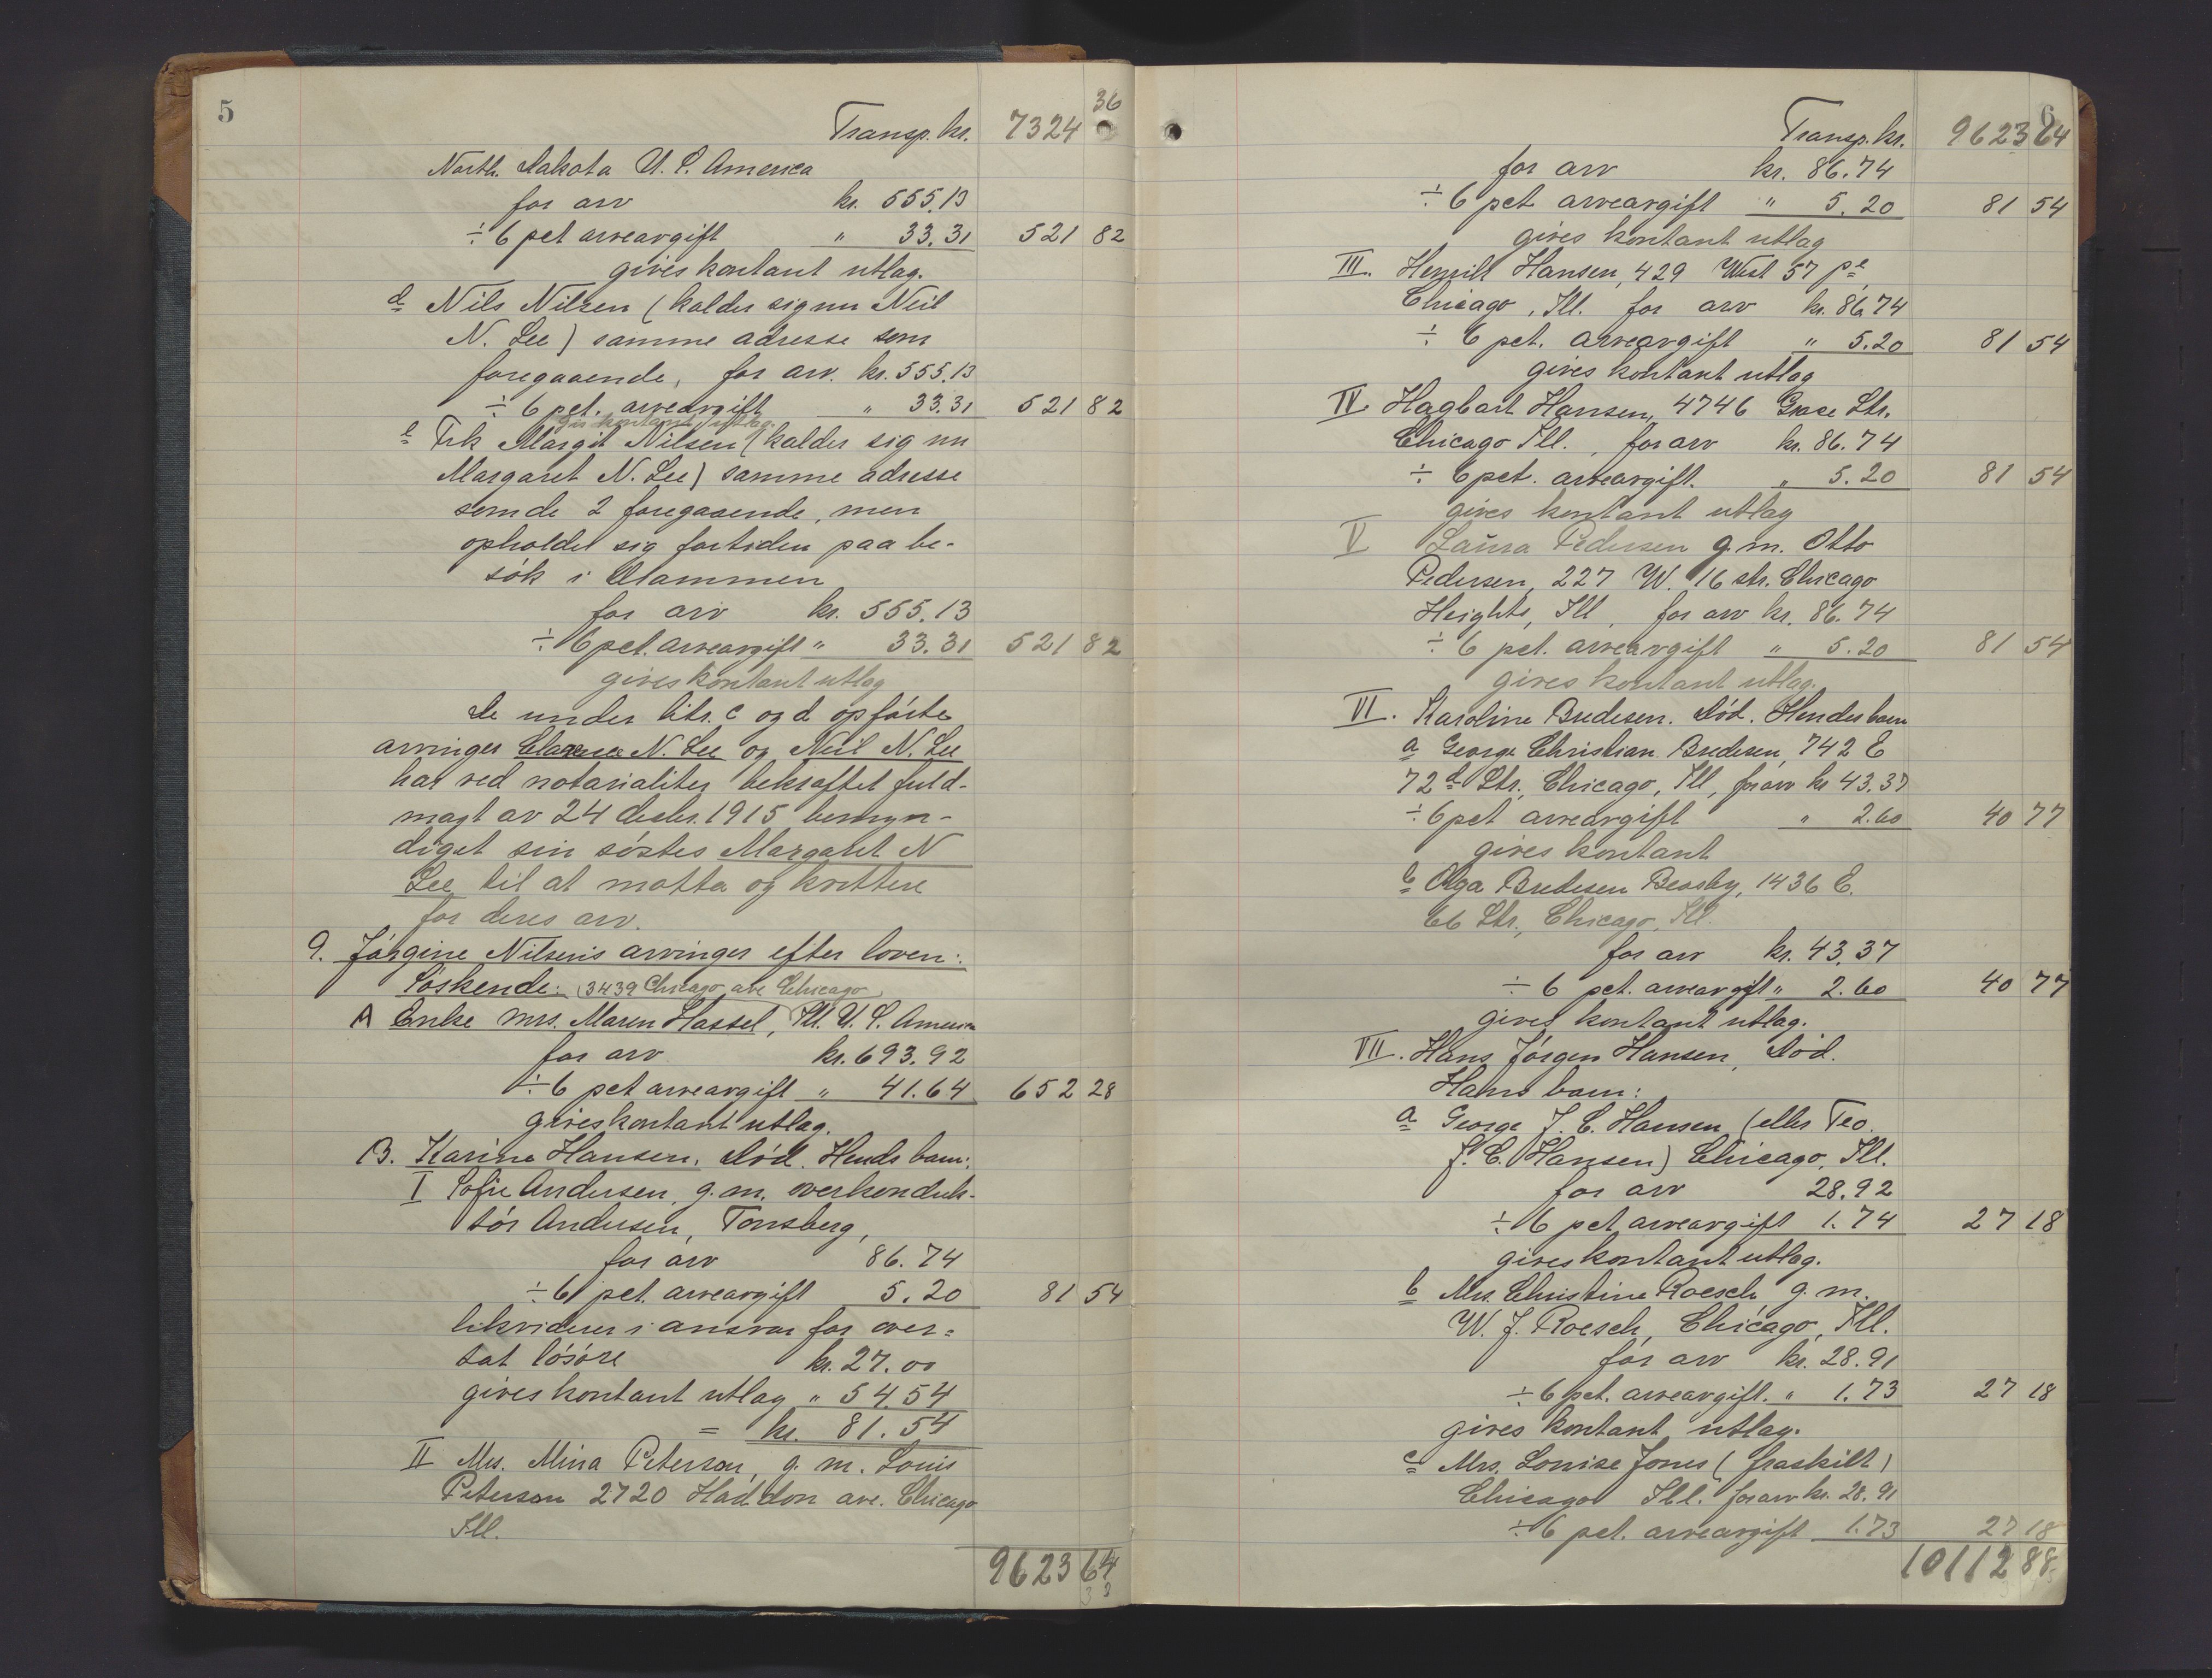 5
36
Transp. kr. 7324
North. Dakota U. S. America
for arv kr. 555.13
÷ 6 pct arveavgift " 33.31 521 82
gives kontant utlag.
d Nils Nilsen (kalder sig nu Neil
N. Lee) samme adresse som
foregaaende, for arv. kr. 555.13
÷ 6 pct. arveavgift " 33.31 521 82
gis kontant utlag.
e Frk Margit Nilsen (kalder sig nu
Margaret N. Lee) samme adresse
som de 2 foregaaende, men
opholdes sig fortiden paa be-
søk i Drammen
for arv kr. 555.13
÷ 6 pct. arveavgift " 33.31 521 82
gives kontant utlag
De under litr. c og d opførte
arvinger Clarence N. Lee og Neil N. Lee
har ved notarialiter bekræftet fuld-
magt av 24 decbr. 1915 bemyn-
diget sin søster Margaret N
Lee til at motta og kvittere
for deres arv.
9. Jørgine Nilsens arvinger efter loven:
Søskende: (3439 Chicago ave Chicago
A Enke mrs. Maren Hassel, Ill. U. S. America
for arv kr. 693.92
÷ 6 pct arveavgift " 41.64 652 28
gives kontant utlag.
B. Karine Hansen. Død. Hends barn:
I Sofie Andersen, g. m. overkonduk-
tør Andersen, Tønsberg,
for arv 86.74
÷ 6 pct. arveavgift 5.20 81 54
likviderer i ansvar for over-
tat løsøre kr. 27.00
gives kontant utlag " 54.54
= kr. 81.54
II Mrs. Mina Peterson, g. m. Louis
Peterson 2720 Haddon ave. Chicago
Ill.
9623 64
6
Transp. kr. 9623 64
for arv kr. 86.74
÷ 6 pct arveavgift " 5.20 81 54
gives kontant utlag
III. Henrik Hansen, 429 West 57 pl
Chicago, Ill. for arv kr. 86.74
÷ 6 pct. arveavgift " 5.20 81 54
gives kontant utlag
IV Hagbart Hansen, 4746 Grace Str.
Chicago Ill., for arv kr. 86.74
÷ 6 pct. arveavgift. " 5.20 81 54
gives kontant utlag
V Laura Pedersen g. m. Otto
Pedersen, 227 W. 16 str. Chicago
Heights, Ill, for arv kr. 86.74
÷ 6 pct. arveavgift " 5.20 81 54
gives kontant utlag.
VI. Karoline Bredesen. Død. Hendes barn
a George Christian Bredesen, 742 E
72d Str., Chicago, Ill, for arv kr 43.37
÷ 6 pct arveavgift " 2.60 40 77
gives kontant
b Olga Bredesen Beasley, 1436 E.
66 Str., Chicago, Ill.
for arv kr. 43.37
÷ 6 pct. arveavgift " 2.60 40 77
gives kontant utlag.
VII. Hans Jørgen Hansen, Død.
Hans barn:
a George J. C. Hansen (eller Teo.
J. C. Hansen) Chicago, Ill.
for arv 28.92
÷ 6 pct. arveavgift 1.74 27 18
gives kontant utlag.
b Mrs. Christine Roesch g. m.
W. J. Roesch, Chicago, Ill.
for arv kr. 28.91
÷ 6 pct. arveavgift. " 1.73 27 18
gives kontant utlag.
c Mrs. Louise Jones (fraskilt)
Chicago Ill. for arv kr. 28.91
÷ 6 pct. arveavgift 1.73 27 18
10112 88